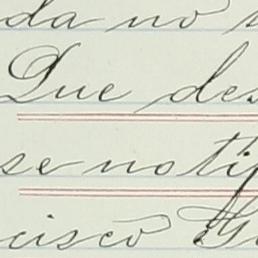 da no
Que des
se notif
cisco G